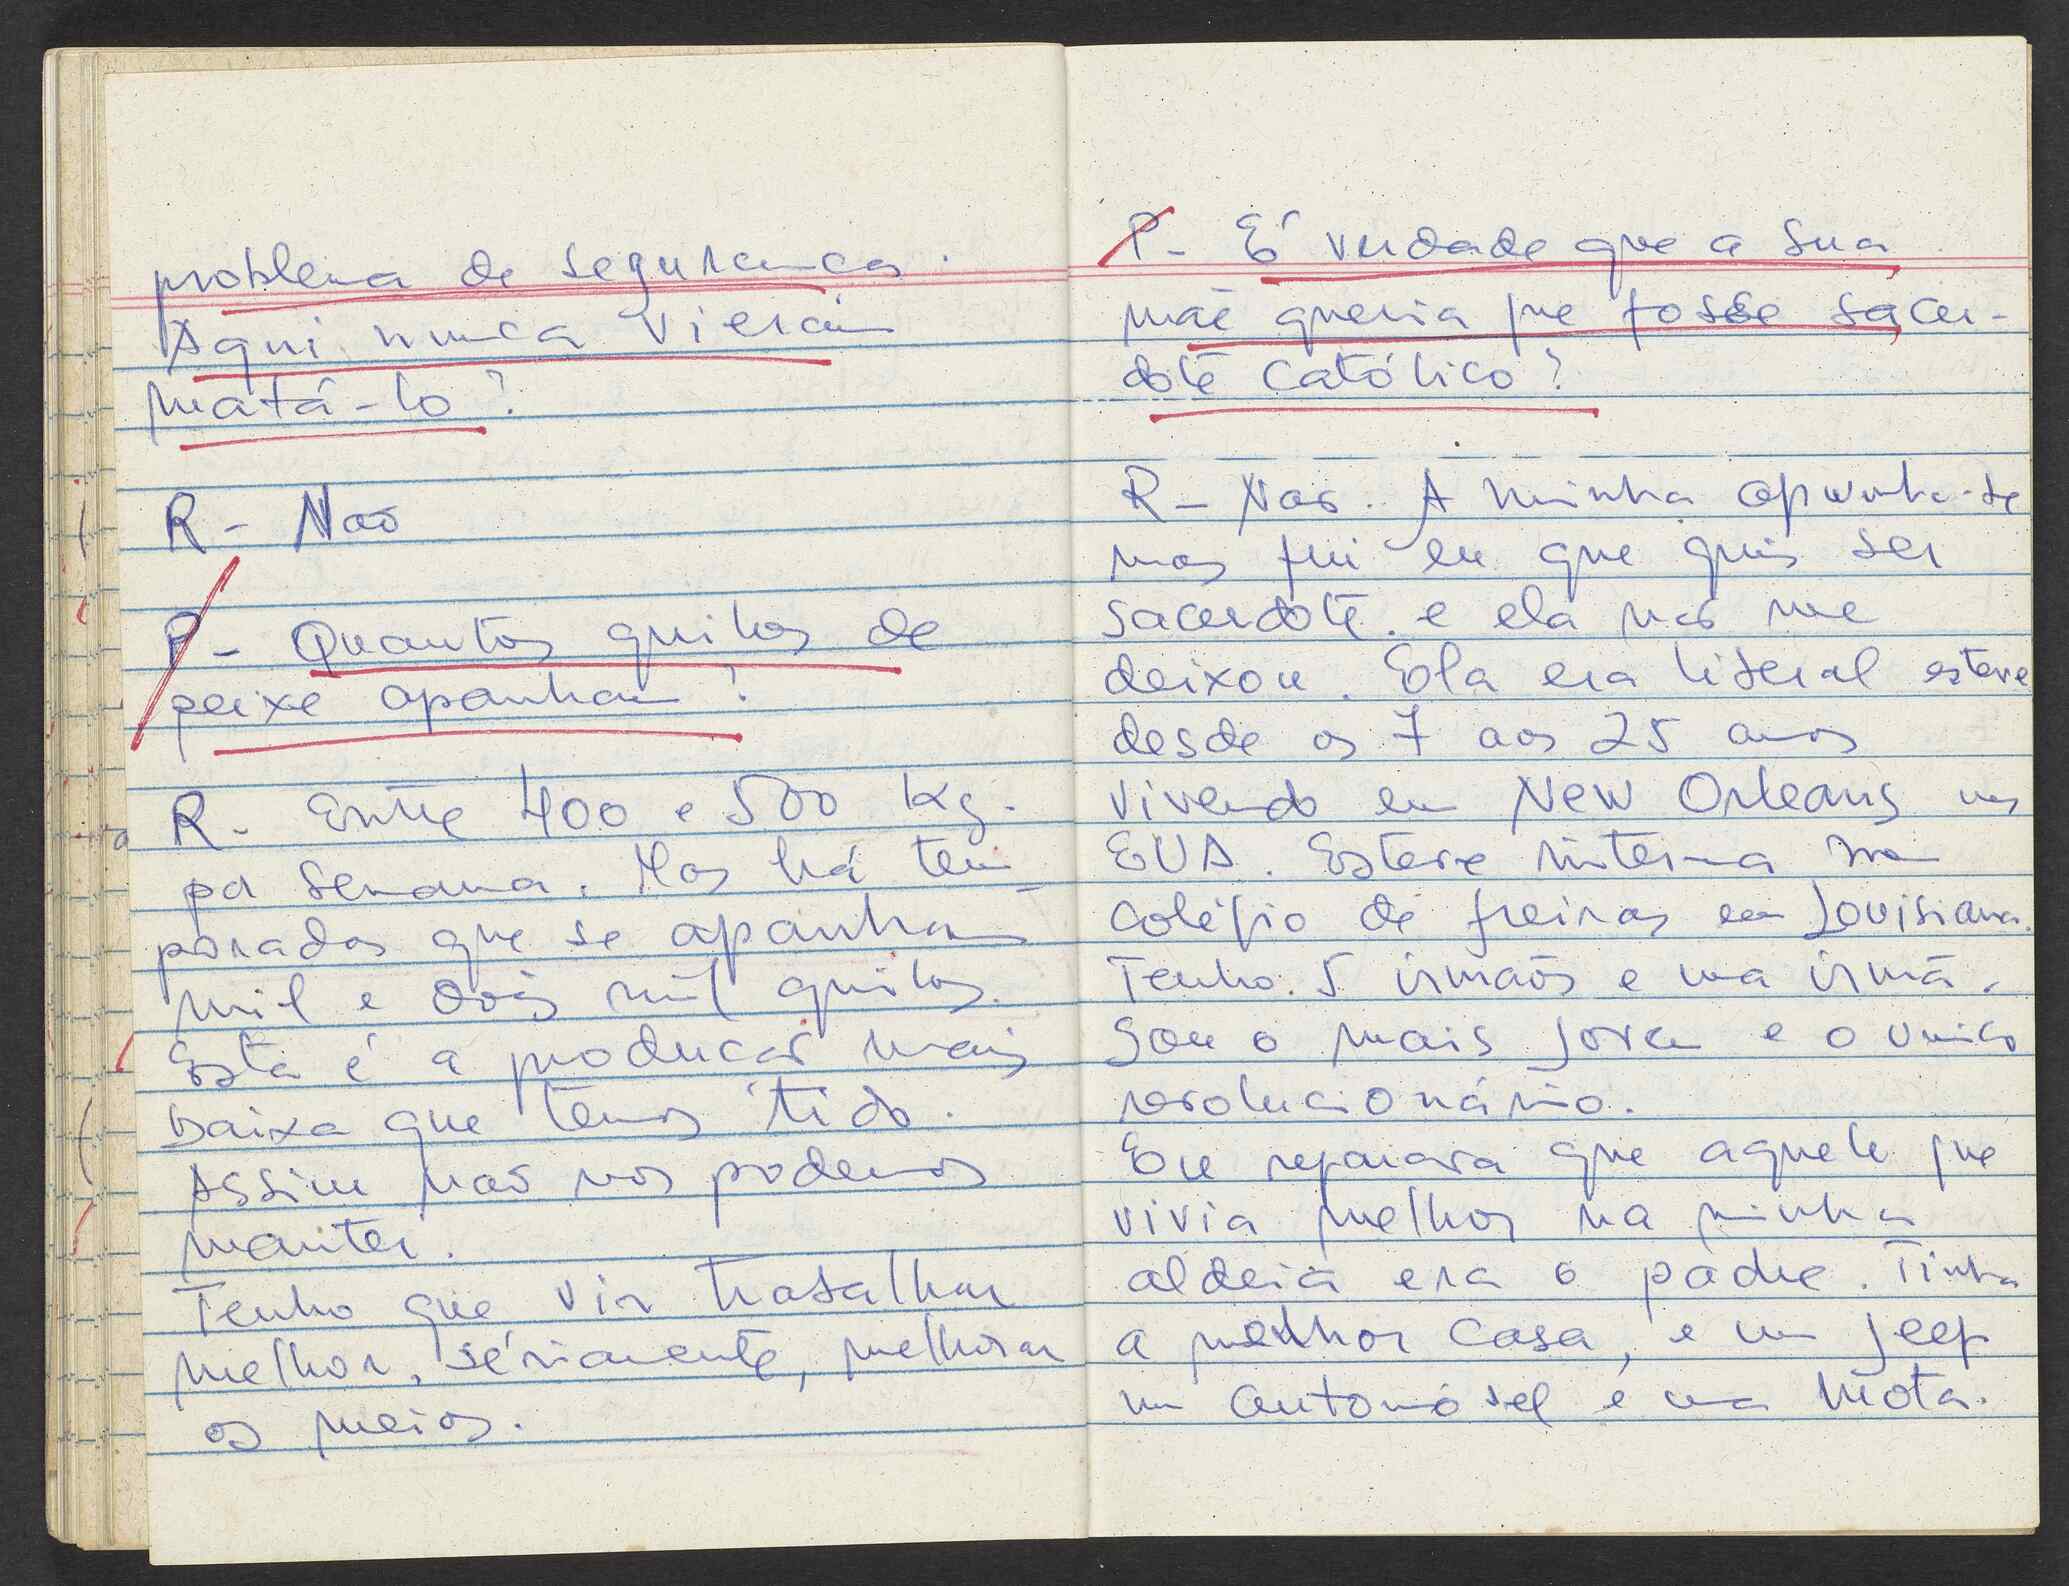 problema de segurança.
Aqui nunca vieram
matá-lo?
R - Não
P - Quantos quilos de
peixe apanham?
R - Entre 400 e 500 kg.
por semana. Mas há tem-
poradas que se apanham
mil e dois mil quilos.
Esta é a producão mais
baixa que temos tido.
Assim não nos podemos
manter.
Tenho que vir trabalhar
melhor, sériamente, melhorar
os meios.
P - É verdade que a sua
mãe queria que fosse sacer-
dote católico?
R - Não. A minha opunha-se
mas fui eu que quis ser
sacerdote. e ela não me
deixou. Ela era liberal esteve
desde os 7 aos 25 anos
vivendo em New Orleans nos
EUA. Esteve interna num
colégio de freiras em Louisiana.
Tenho 5 irmãos e uma irmã.
Sou o mais jovem e o unico
revolucionário.
Eu reparara que aquele que
vivia melhor na minha
aldeia era o padre. Tinha
a melhor casa, e um jeep
um automóvel e uma mota.